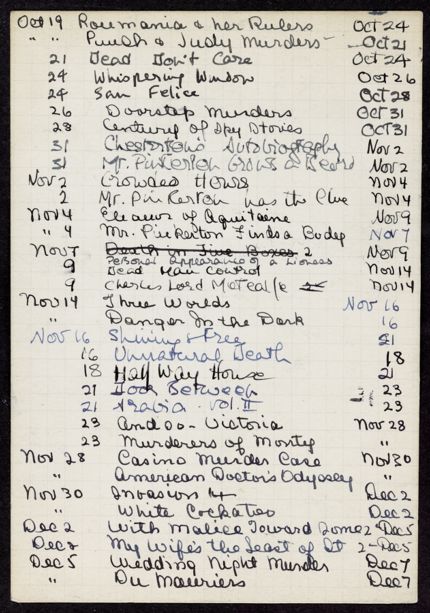 Oct 19 Roumania & her Rulers Oct 24
" " Punch & Judy Murders Oct 21
21 Dead Don't Care Oct 24
24 Whispering Window Oct 26
24 San Felice Oct 28
26 Doorstep Murders Oct 31
28 Century of Spy Stories Oct 31
31 Chesterton's Autobiography Nov 2
31 Mr. Pinkerton Grows a Beard Nov 2
Nov 2 Crowded Hours Nov 4
2 Mr. Pinkerton has the Clue Nov 4
Nov 4 Eleanor of Aquitaine Nov 9
" 4 Mr. Pinkerton Finds a Body Nov 7
Nov 7 Death in Five Boxes 2 Nov 9
Personal Appearance of a Lioness
9 Dead Man Control Nov 14
9 Charles Lord Metcalfe Nov 14
Nov 14 Three Worlds Nov 16
" Danger In the Dark 16
Nov 16 Shining & Free 21
16 Unnatural Death 18
18 Half Way House 21
21 Door Between 23
21 Arabia Vol. II 23
23 and so - Victoria Nov 28
23 Murderers of Monty "
Nov 28 Casino Murder Case Nov 30
" American Doctor's Odyssey "
Nov 30 Invasion 14 Dec 2
" White Cockatoo Dec 2
Dec 2 With Malice Toward Some 2 - Dec 5
Dec 2 My Wife's the Least of It 2 - Dec 5
Dec 5 Wedding Night Murder Dec 7
" Du Mauriers Dec 7